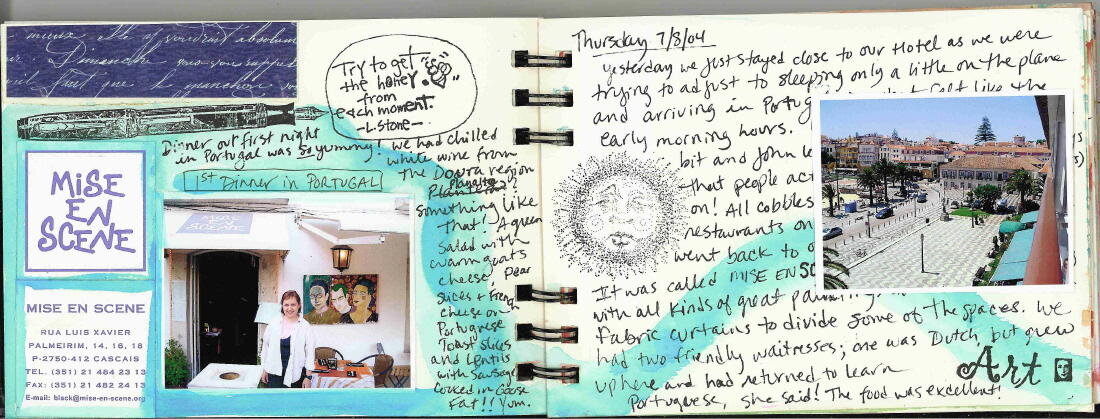 Try to get
the honey
from
each moment.
-L. Stone-
Dinner out first night
in Portugal was so yummy!
1st Dinner in PORTUGAL
we had chilled
white wine from
the Douro region
Something like
that! A green
salad with
warm goats
cheese, pear
slices + French
cheese on
Portugese
Toast slices
and Lentils
with Sausage
cooked in Goose
Fat!! Yum.
MiSE
EN
SCENE
MISE EN SCENE
RUA LUIS XAVIER
PALMEIRIM, 14, 16, 18
P-2750-412 CASCAIS
TEL. (351) 21 484 23 13
FAX: (351) 21 482 24 13
E-mail: black@mise-en-scene.org
MISE
EN
SCENE
Thursday 7/8/04
Yesterday we just stayed close to our Hotel as we were
trying to adjust to sleeping only a little on the plane
and arriving in Portug that felt like the
early morning hours.
bit and John
that people act
on! All cobbles
restaurants on
went back to
It was called MISE EN SC
with all kinds of great
Fabric curtains to divide some of the spaces. We
had two friendly waitresses; one was Dutch, but grew
up here and had returned to learn
Portuguese, she said! The food was excellent!
Art